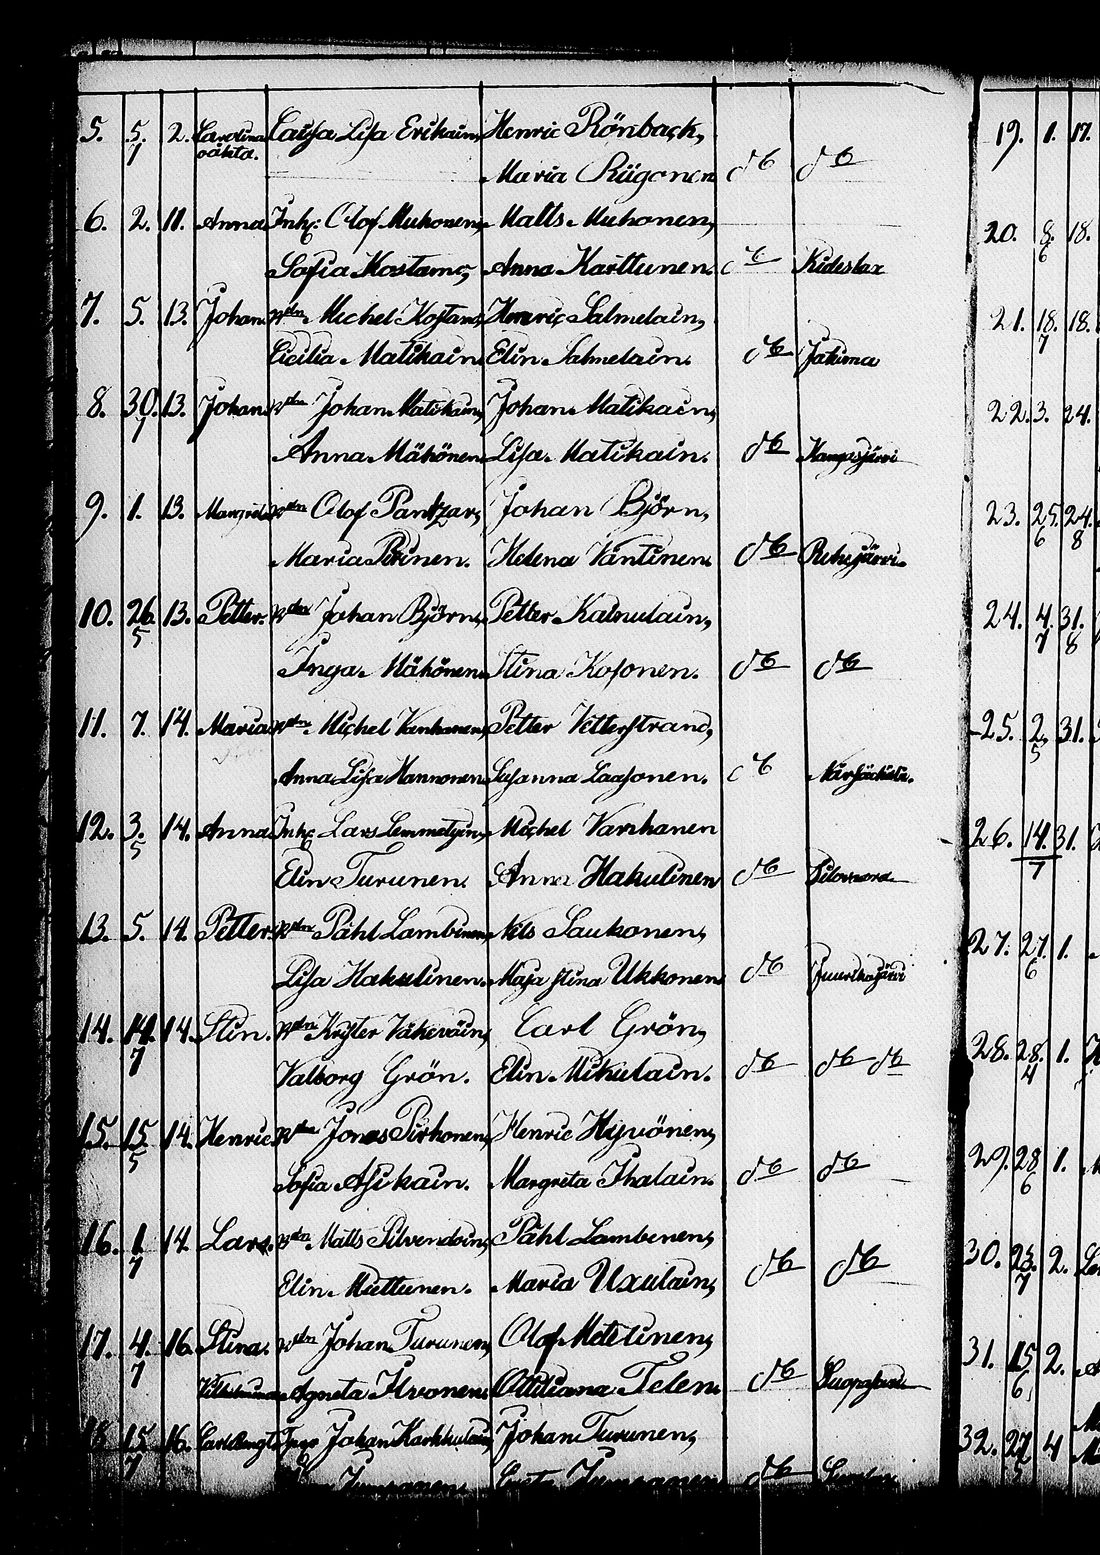 5. 5. 2. Carolina Caisa Lisa Erikain, Henric Rönback,
7 oäkta.
Maria Riigonen do do
6. 2. 11. Anna Inh: Olof Muhonen, Matts Muhonen,
Sofia Kostamo, Anna Karttunen. do Kideslax
7. 5. 13. Johan Bdn Michel Kostamo, Henric Salmelain,
Cicilia Matikain. Elin Salmelain. do Jakima
8. 30. 13. Johan. Bdn Johan Matikain, Johan Matikain,
7
Anna Mähönen Lisa Matikain. do Kangasjärvi
9. 1. 13. Bdn Olof Pantzar, Johan Björn,
Maria Helena Väntinen. do
10. 26. 13. Petter. Bdn Johan Björn, Petter Kainulain,
5
Inga Mähönen Stina Kosonen. do do
11. 7. 14. Maria Bdn Michel Vanhanen, Petter Vetterstrand,
Anna Lisa Hannonen Susanna Laasonen. do
12. 3. 14. Anna Inh: Lars Lemmetyin, Michel Vanhanen
5
Elin Turunen. Anna Hakulinen do
13. 5. 14. Petter. Bdn Påhl Lambinen, Nils Saukonen,
Lisa Hakulinen. Maja Stina Ukkonen do Juurikajärvi
14. 14. 14. Stin. Bdn Krister Väkeväin, Carl Grön,
7
Valborg Grön. Elin Mikulain. do do do
15. 15 14. Henric Bdn Jonas Pirhonen, Henric Hyvönen,
5
Sofia Asikain. Margreta Ihalain. do do
16. 1 14. Lars. Bdn Matts Silvendoin, Påhl Lambinen,
7
Elin Muttunen. Maria Uxulain, do do
17. 4. 16. Stina. Bdn Johan Turunen, Olof
7
Vilhelmina Agneta Hvonen. Ottiliana Telen. do
18 15 16. Carl Bengt Johan Karkkulain, Johan Turunen,
7
do
19. 1. 17.
20. 8. 18.
6
21. 18. 18.
7
22. 3. 24.
23. 25. 24.
6 8
24. 4. 31.
7 8
25. 2. 31.
5
26. 14. 31.
7
27. 27. 1.
6
28. 28. 1.
4
29. 28 1.
6
30. 23. 2.
7
31. 15 2.
6
32. 27 4
5